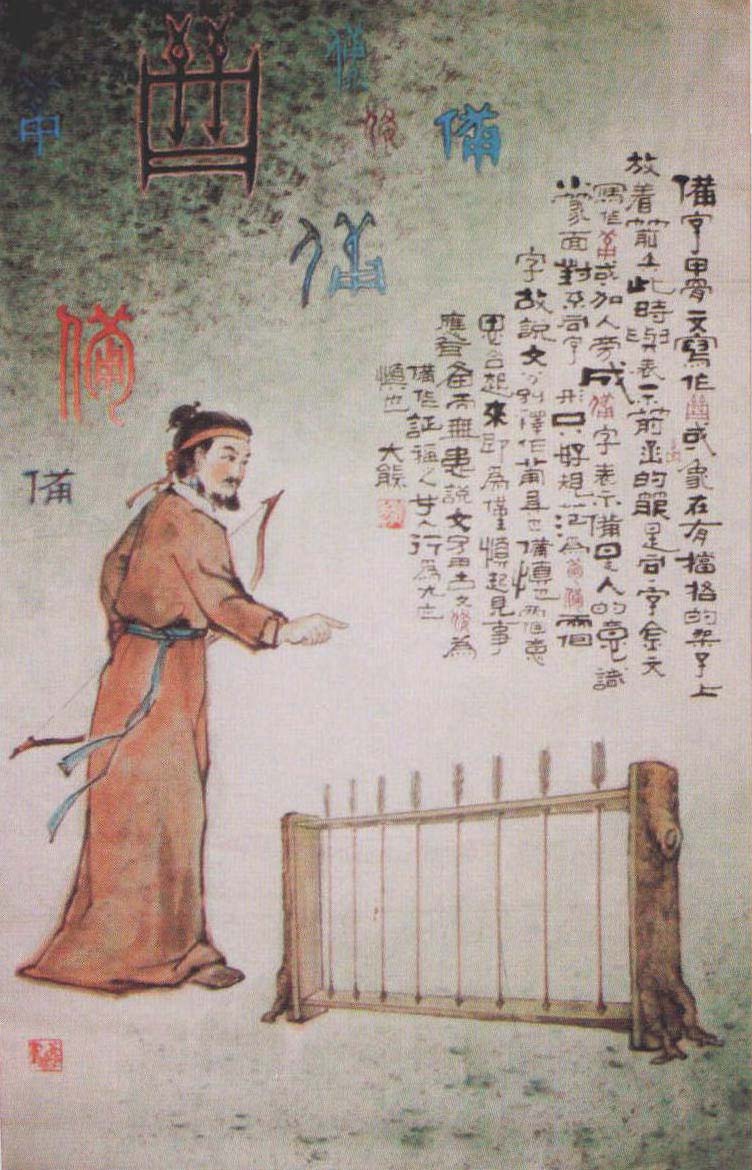 備
備
備
備
備字甲骨文寫作或象在有擋格的架子上
放着箭此時與表示箭函的箙是同字金文
寫作或加人旁成備字表示備是人的意識
小篆面對不同字形只好規范為葡備兩個
字故說文分別釋作葡具也備慎也兩個意
思合起來即為謹慎起見事
應备而無患說文古文為
備作証稱人人行為
慎也 大熊